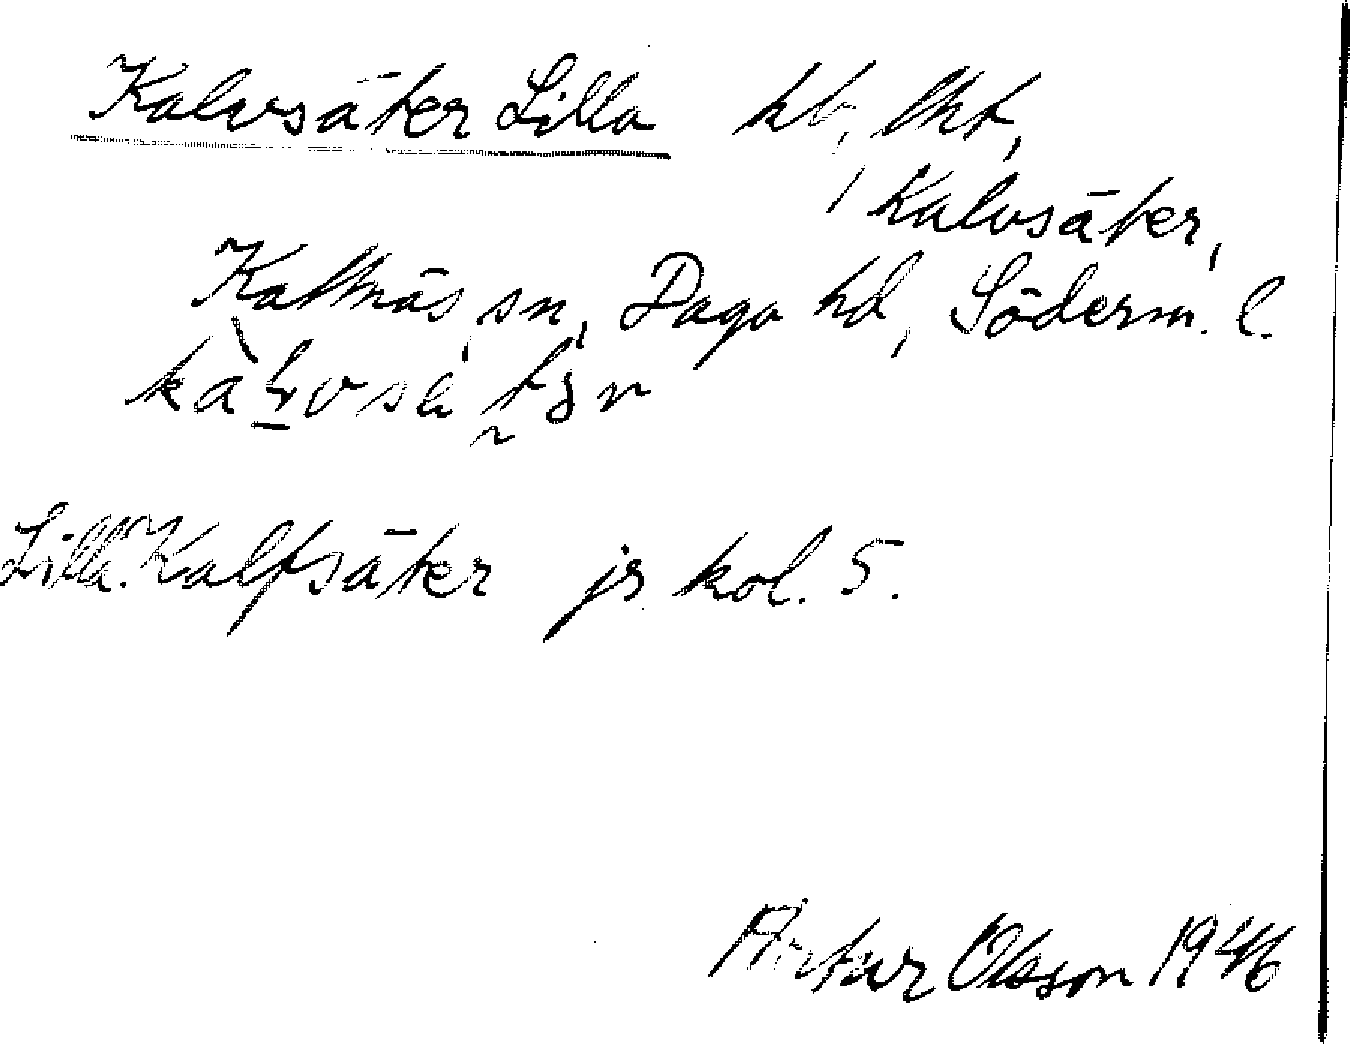 Kalvsäter Lilla hb, lht,
i Kalvsäter,
Kattnäs sn, Daga hd, Söderm. l.
Lilla Kalfsäter js kol. 5.
Artur Olsson 1946